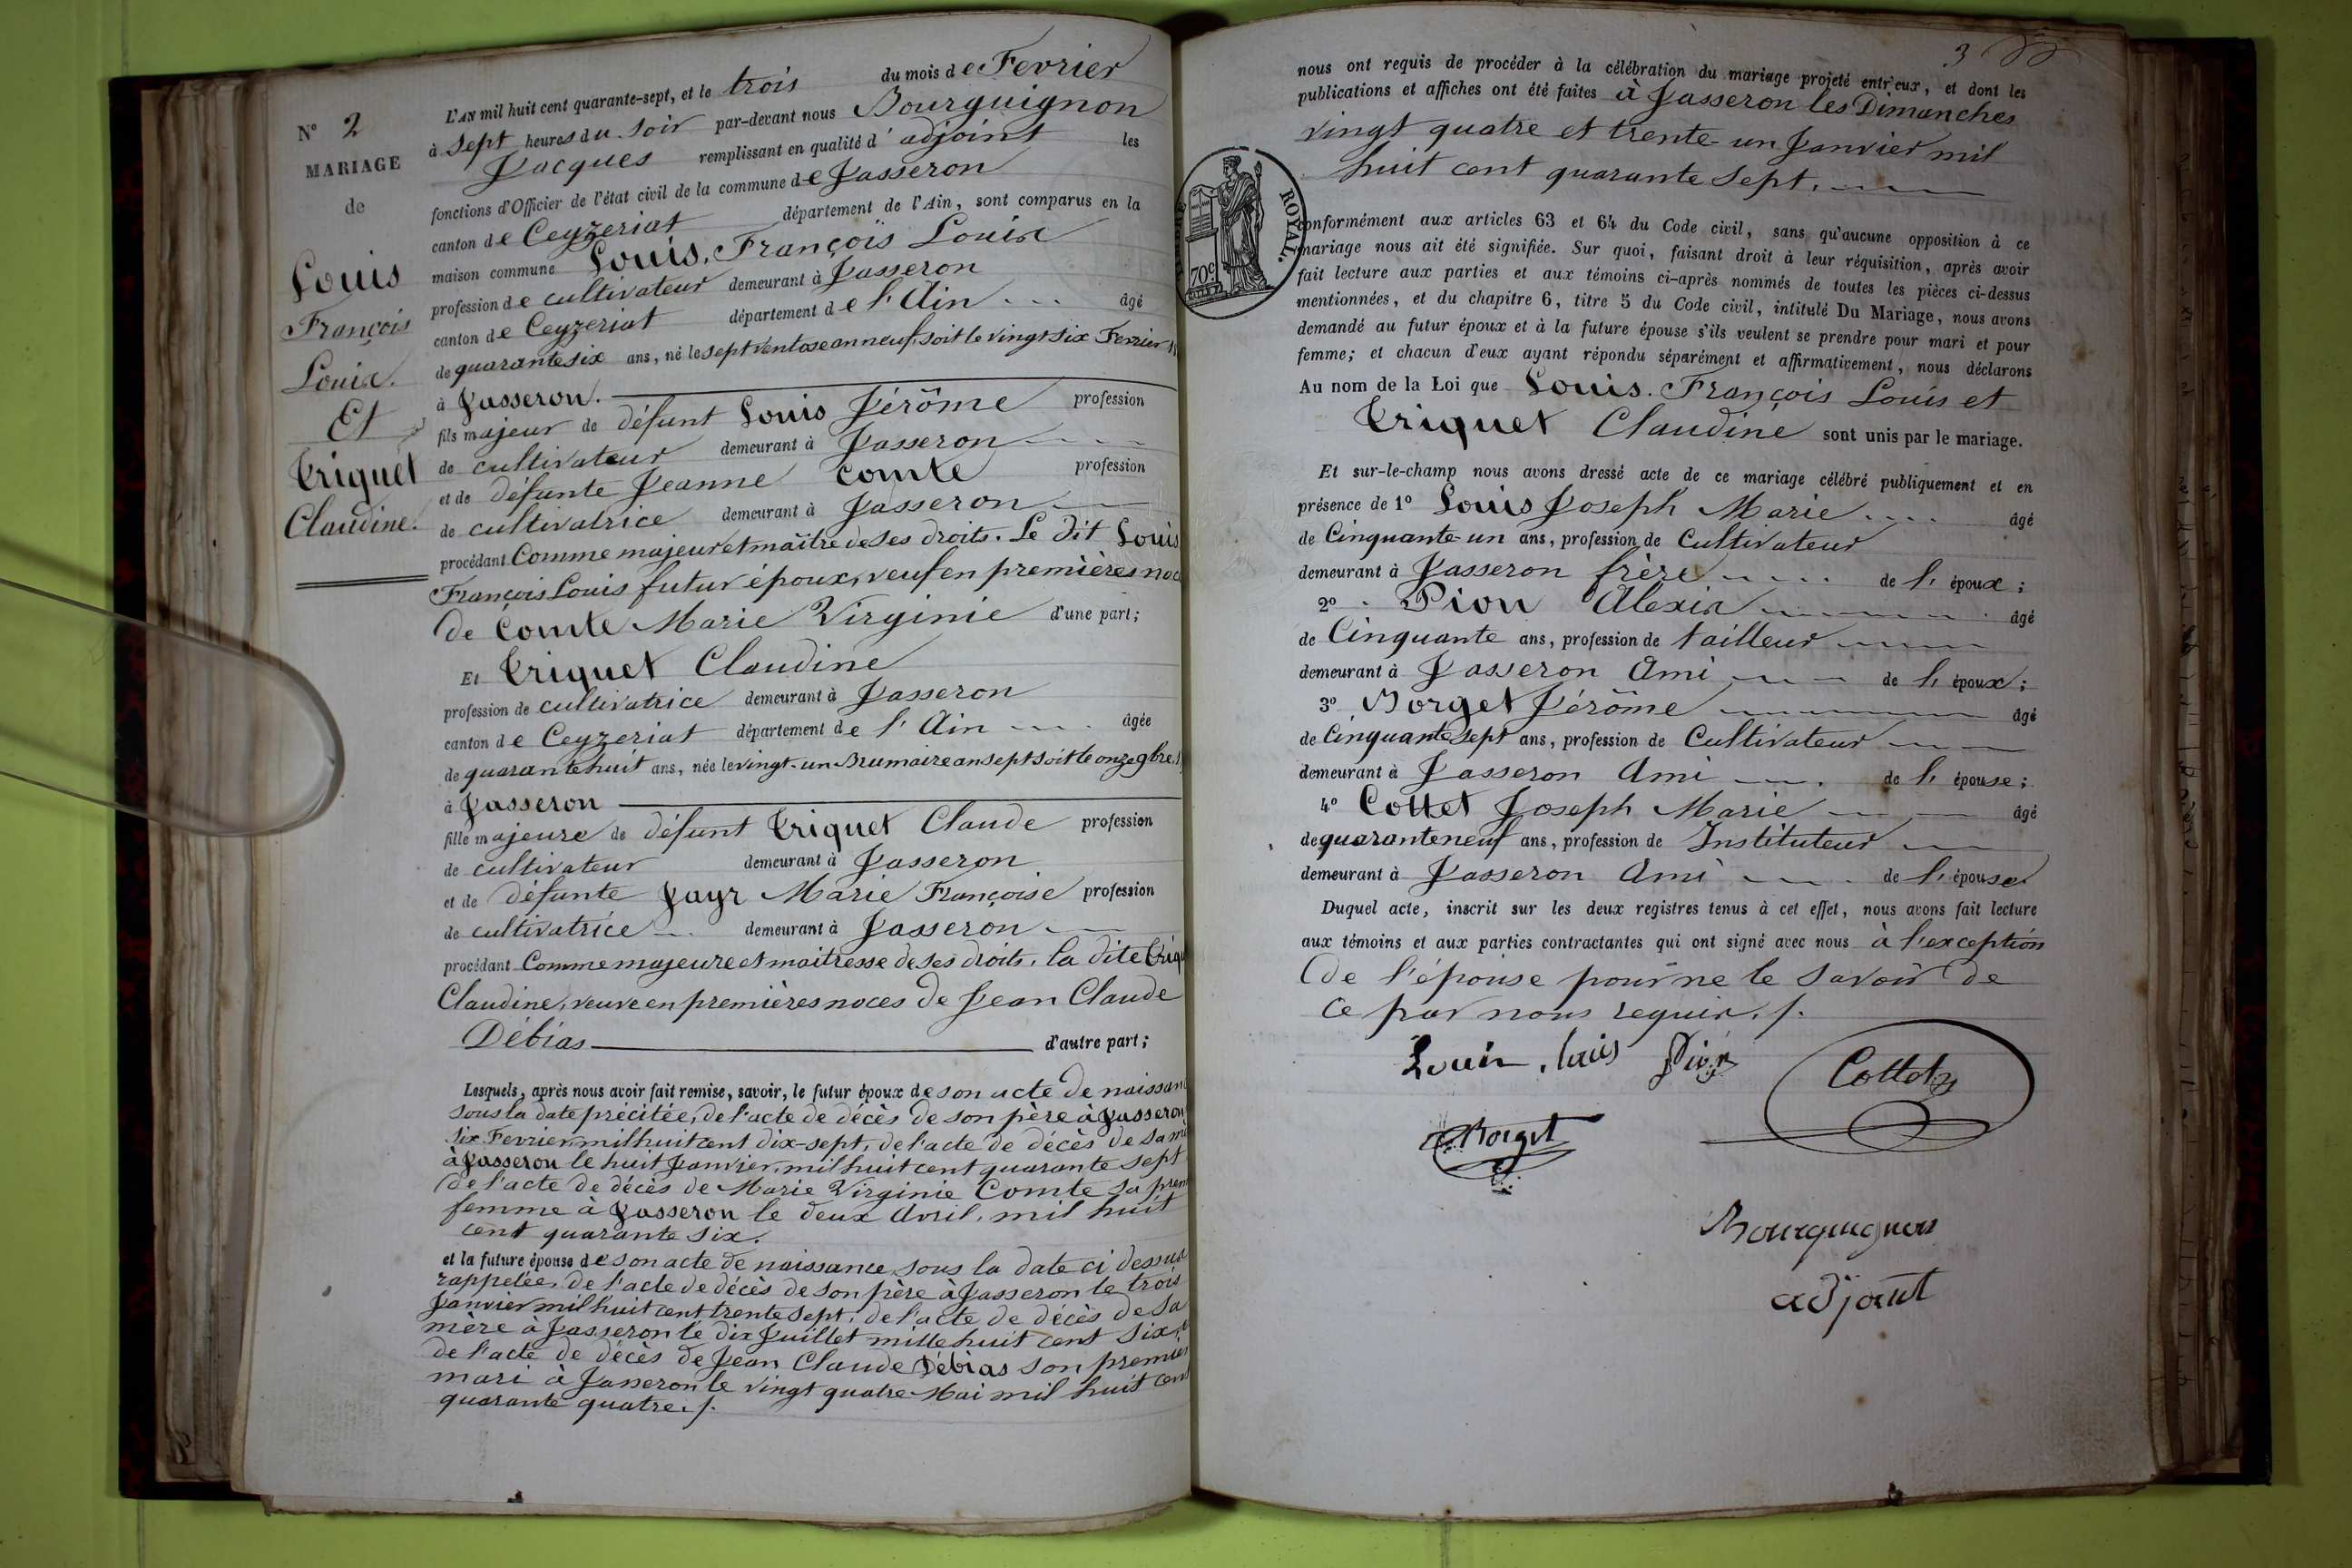 N° 2
MARIAGE
de
Louis
François
Louis.
Et
Triquet
Claudine.
L'AN mil huit cent quarante-sept, et le trois du mois de Fevrier
à Sept heures du Soir par-devant nous Bourguignon
Jacques remplissant en qualité d'adjoint les
fonctions d'Officier de l'état civil de la commune de Jasseron
canton de Ceyzeriat département de l'Ain, sont comparus en la
maison commune Louis. François Louis
profession de cultivateur demeurant à Jasseron
canton de Ceyzeriat département de l'Ain âgé
de quarante six ans, né le sept ventose an neuf, soit le vingt six Fevrier
à Jasseron.
fils majeur de défunt Louis Jérôme profession
de cultivateur demeurant à Jasseron
et de défunte Jeanne Comte profession
de cultivatrice demeurant à Jasseron
procédant Comme majeur et maître de ses droits. Le dit Louis
François Louis futur époux, veuf en premières
de Comte Marie Virginie d'une part;
Et Triquet Claudine
profession de cultivatrice demeurant à Jasseron
canton de Ceyzeriat département de l'Ain âgée
de quarante huit ans, née le vingt-un Brumaire an sept soit le onze 9bre
à Jasseron
fille majeure de défunt Triquet Claude profession
de cultivateur demeurant à Jasseron
et de défunte Jayr Marie Françoise profession
de cultivatrice demeurant à Jasseron
procédant Comme majeure et maitresse de ses droits. la dite Triqu
Claudine, veuve en premières noces de Jean Claude
Débias d'autre part;
Lesquels, après nous avoir fait remise, savoir, le futur époux de son acte de naissan
sous la date précitée, de l'acte de décès de son père à Jasseron
Six Fevrier mil huit cent dix-sept, de l'acte de décès de sa
à Jasseron le huit Janvier, mil huit cent quarante sept
de l'acte de décès de Marie Virginie Comte sa prem
femme à Jasseron le deux Avril, mil huit
cent quarante six.
et la future épouse de son acte de naissance sous la date ci dessus
rappelée, de l'acte de décès de son père à Jasseron le trois
Janvier mil huit cent trente sept, de l'acte de décès de sa
mère à Jasseron le dix Juillet mille huit cent six,
de l'acte de décès de Jean Claude Débias son premier
mari à Jasseron le vingt quatre Mai mil huit cent
quarante quatre./.
3
nous ont requis de procéder à la célébration du mariage projeté entr'eux, et dont les
publications et affiches ont été faites à Jasseron les Dimanches
vingt quatre et trente-un Janvier mil
huit cent quarante sept.
ROYAL.
70c
conformément aux articles 63 et 64 du Code civil, sans qu'aucune opposition à ce
mariage nous ait été signifiée. Sur quoi, faisant droit à leur réquisition, après avoir
fait lecture aux parties et aux témoins ci-après nommés de toutes les pièces ci-dessus
mentionnées, et du chapitre 6, titre 5 du Code civil, intitulé Du Mariage, nous avons
demandé au futur époux et à la future épouse s'ils veulent se prendre pour mari et pour
femme; et chacun d'eux ayant répondu séparément et affirmativement, nous déclarons
Au nom de la Loi que Louis. François Louis et
Triquet Claudine sont unis par le mariage.
Et sur-le-champ nous avons dressé acte de ce mariage célébré publiquement et en
présence de 1° Louis Joseph Marie âgé
de Cinquante-un ans, profession de Cultivateur
demeurant à Jasseron frère de l'époux;
2° Pion Alexis âgé
de Cinquante ans, profession de tailleur
demeurant à Jasseron Ami de l'époux;
3° Borget Jérôme âgé
de Cinquante sept ans, profession de Cultivateur
demeurant à Jasseron Ami de l'épouse;
4° Cottet Joseph Marie âgé
de quarante neuf ans, profession de Instituteur
demeurant à Jasseron Ami de l'épouse
Duquel acte, inscrit sur les deux registres tenus à cet effet, nous avons fait lecture
aux témoins et aux parties contractantes qui ont signé avec nous à l'exception
de l'épouse pour ne le savoir de
ce par nous requis./.
Louis. louis Pion Cottet
Borget
Bourguignon
adjoint